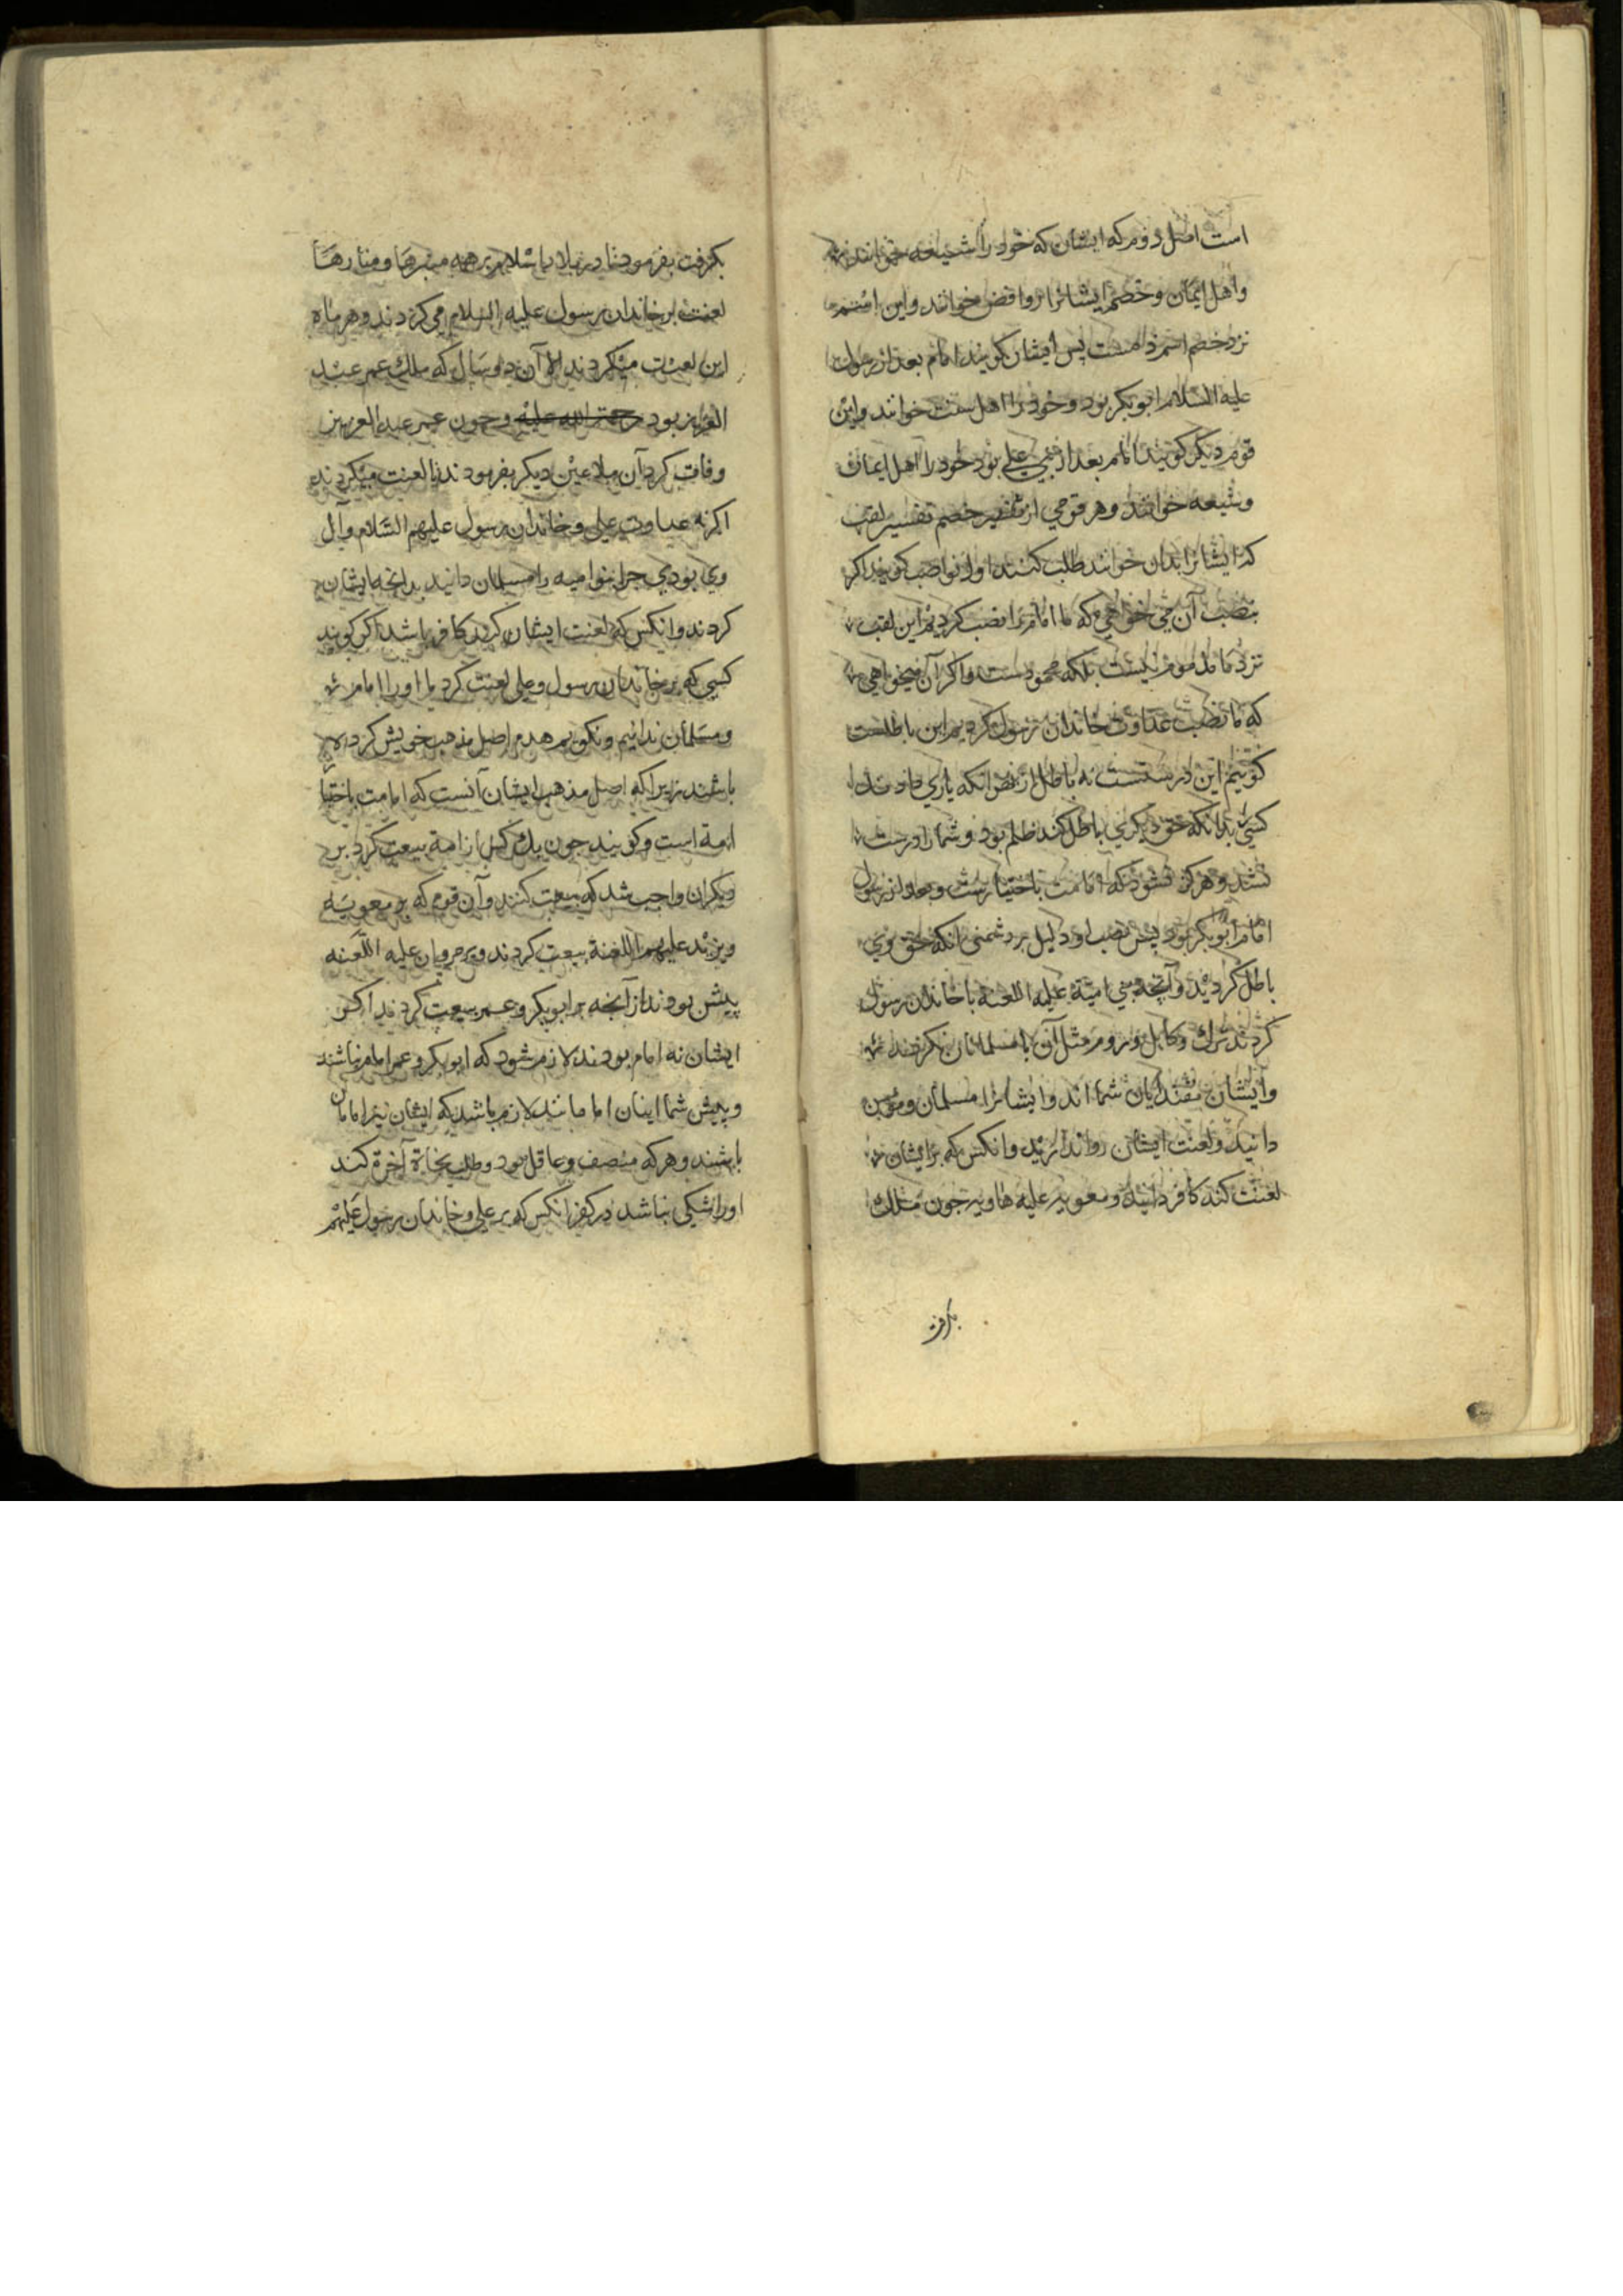 است اصل دوم که ایشان که خود را شیعه خوانند
واهل ایمان وخصم ایشانرا روافض خوانند واین اسم
نزد خصم اسم ذم است پس ایشان کویند امام بعد از رسول
علیه السلام ابوبکر بود وخود را اهل سنت خوانند واین
قوم دیکر کویند امام بعد از نبی علی بود خود را اهل ایمان
وشیعه خوانند وهر قومی از خصم تفسیر لقب
که ایشانرا بدان خوانند طلب کنند اول نواصب کویند اکر
بنصب آن می خواهی که ما امام را نصب کردیم این لقب
نزد ما مذموم نیست بلکه محمودست واکر آن میخواهی
که ما نصب عداوت خاندان رسول کردیم این باطلست
کوئیم این درستست نه باطل از بهر انکه یاری دادن
کسی بدانکه حق دیکری باطل کند ظلم بود وشما را درست
نشد وهرکز نشود که امامت باختیارست وبعد از رسول
امام ابوبکر بود پس نصب او دلیل بر دشمنی انکه حق وی
باطل کردید وآنچه بنی امیة علیه اللعنة با خاندان رسول
کردند ترک وکابل وروم مثل آن با مسلمانان نکردند
وایشان مقتدایان شما اند وایشانرا مسلمان ومؤمن
دانید ولعنت ایشان روا ندارید وانکس که بر ایشان
لعنت کند کافر دانید ومعویه علیه هاویه جون ملک
بکرفت
بکرفت بفرمود تا در بلاد اسلام بر همه منبرها ومنارها
لعنت بر خاندان رسول علیه السلام می کردند وهر ماه
این لعنت میکردند الا آن دو سال که ملک عمر عبد
العزیز بود رحمة الله علیه وجون عمر عبد العزیز
وفات کرد آن ملاعین دیکر بفرمودند تا لعنت میکردند
اکر نه عداوت علی وخاندان رسول علیهم السلام وآل
وی بودی جرا بنوامیه را مسلمان دانید بدانچه ایشان
کردند وانکس که لعنت ایشان کند کافر باشد اکر کویند
کسی که بر خاندان رسول وعلی لعنت کرد ما او را امام
ومسلمان ندانیم ونکویم هدم اصل مذهب خویش کرده
باشند زیرا که اصل مذهب ایشان آنست که امامت باختیار
امة است وکویند جون یک کس از امة بیعت کرد بر
دیکران واجب شد که بیعت کنند وآن قوم که بر معویه
ویزید علیهم اللعنة بیعت کردند وبر مروان علیه اللعنه
بیش بودند از آنچه بر ابوبکر وعمر بیعت کردند اکر
ایشان نه امام بودند لازم شود که ابوبکر وعمر امام نباشند
وپیش شما اینان امامانند لازم باشد که ایشان نیز امامان
باشند وهرکه منصف وعاقل بود وطلب نجاة آخرة کند
اورا شکی نباشد در کفر انکس که بر علی وخاندان رسول علیهم